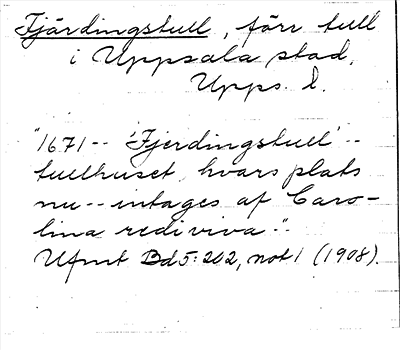 Fjärdingstull, förr tull
i Uppsala stad,
Upps. l.
"1671-- 'Fjerdingstull' --
tullhuset, hvars plats
nu -- intages af Caro-
lina rediviva --".
Ufmt Bd 5: 202, not 1 (1908).